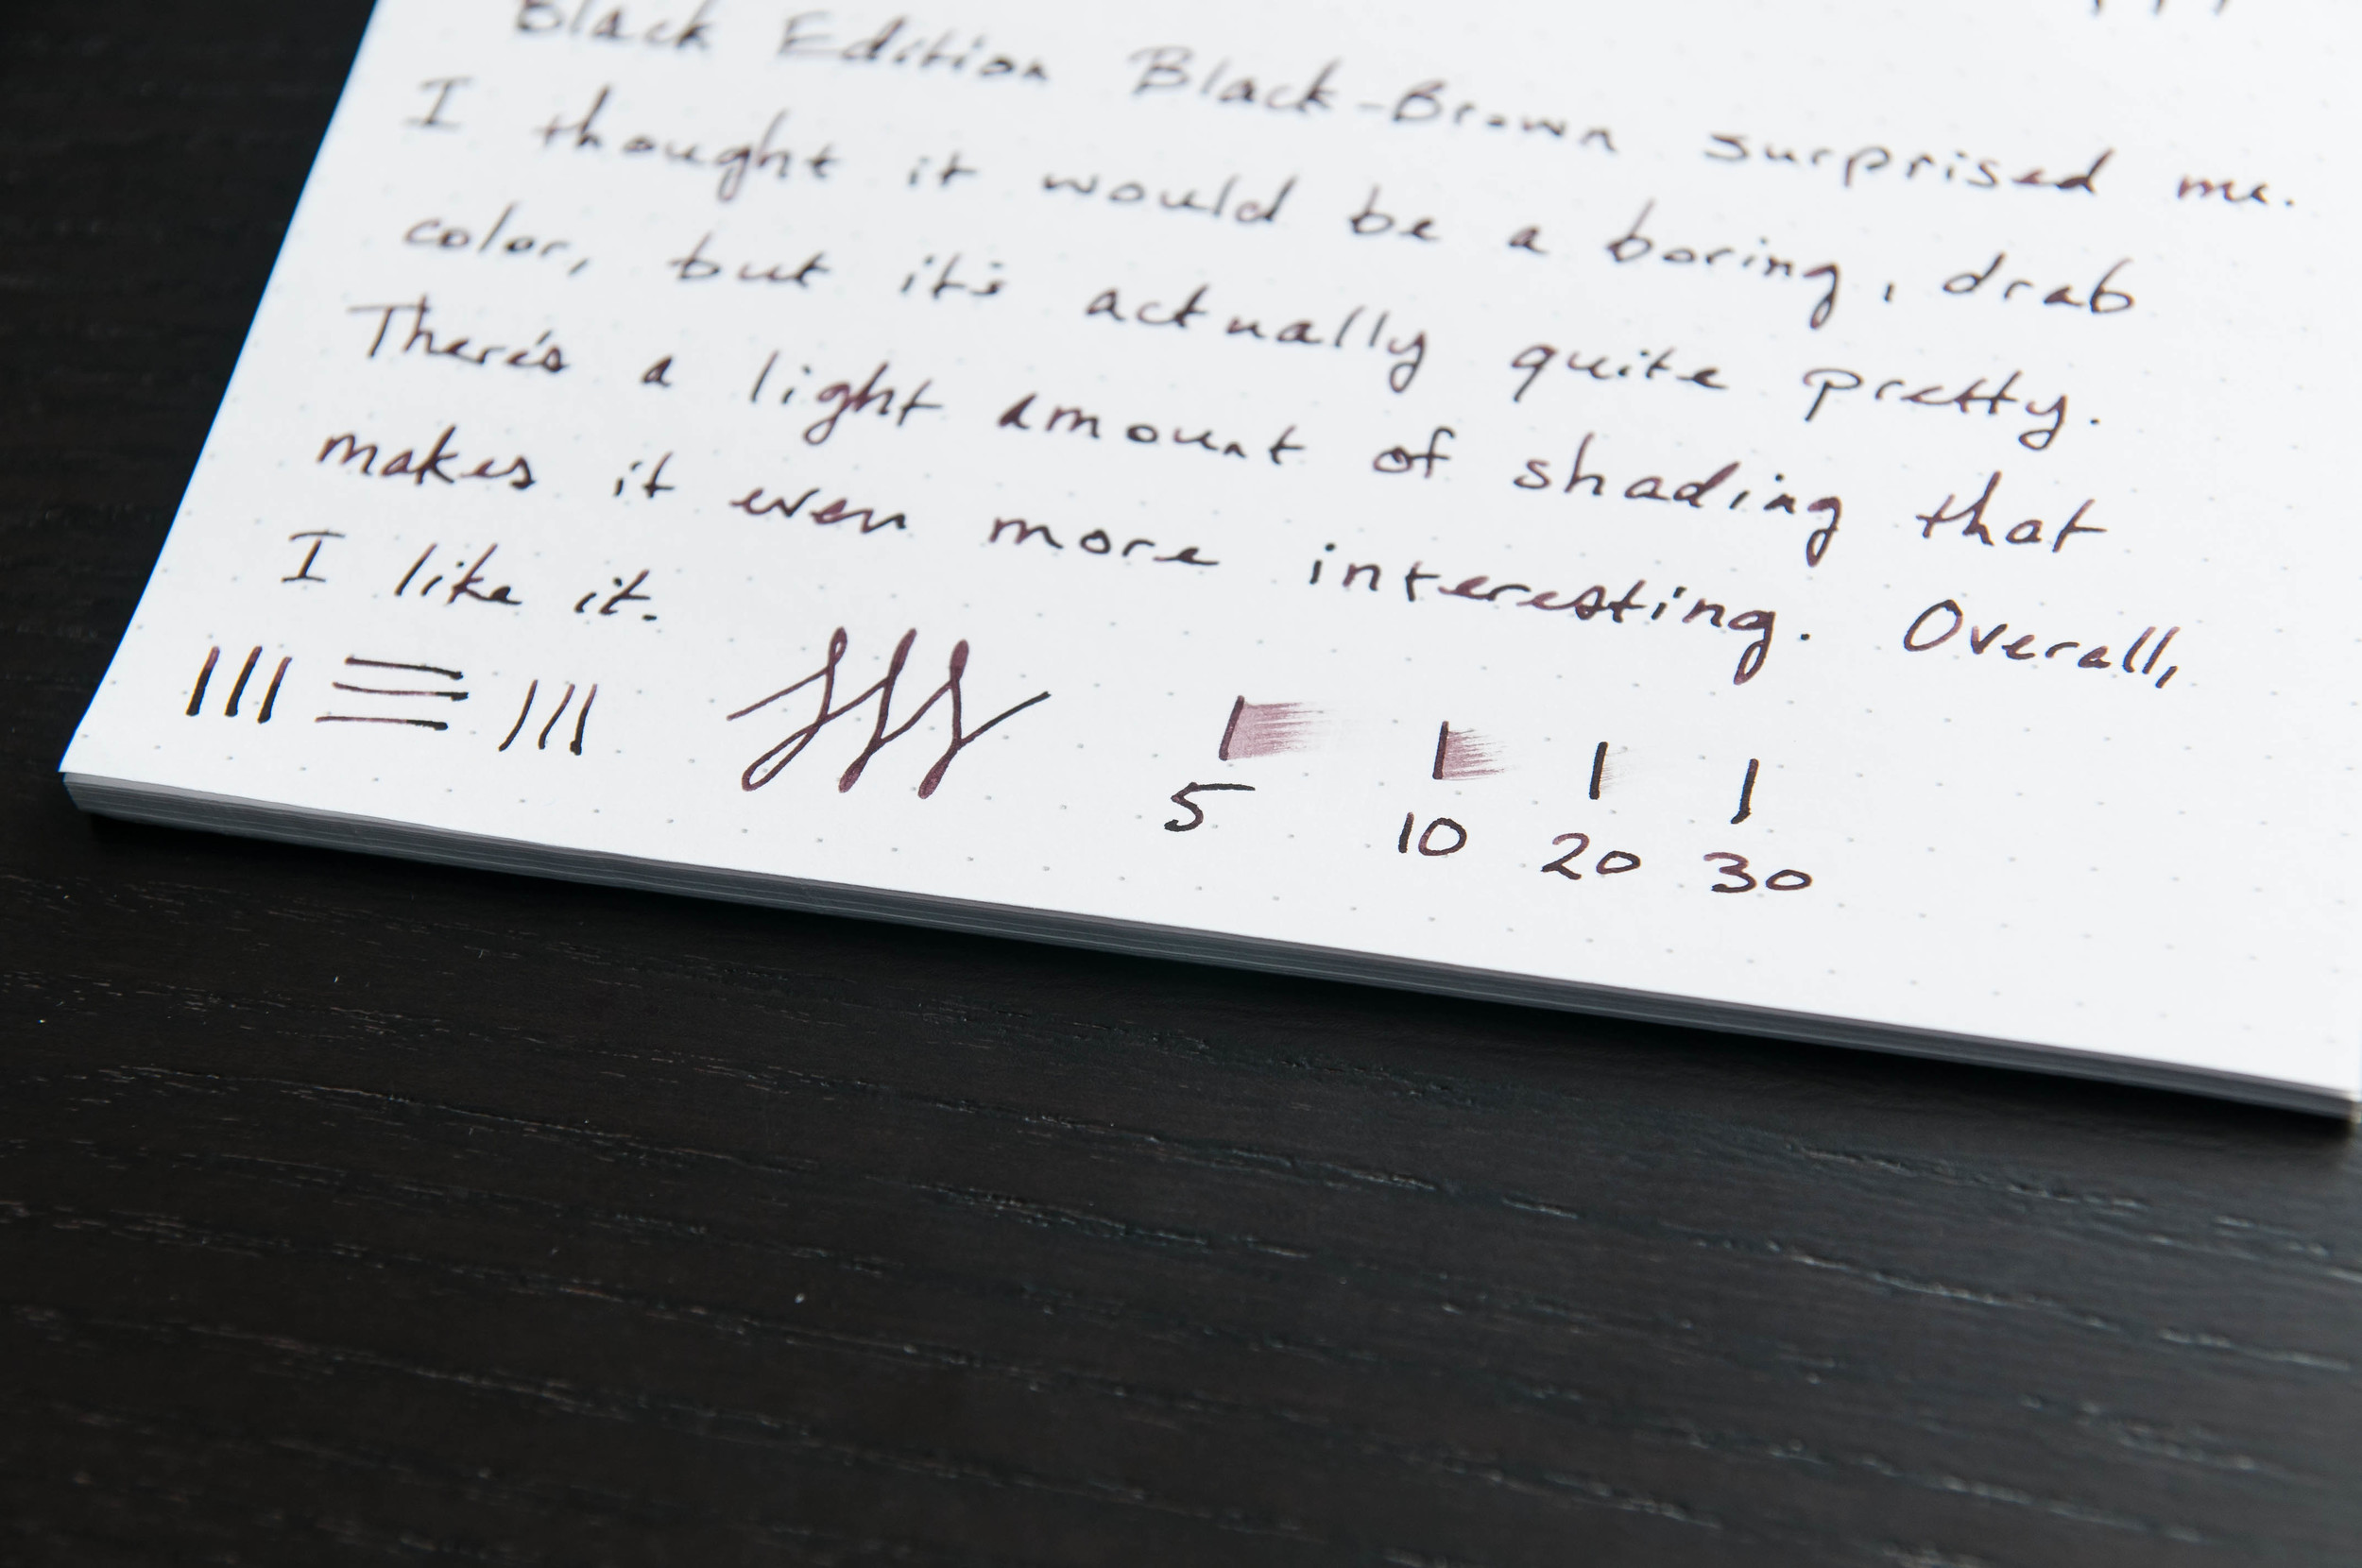 Black Edition Black-Brown surprised me.
I thought it would be a boring, drab
color, but it's actually quite pretty.
There's a light amount of shading that
makes it even more interesting. Overall,
I like it.
5 10 20 30